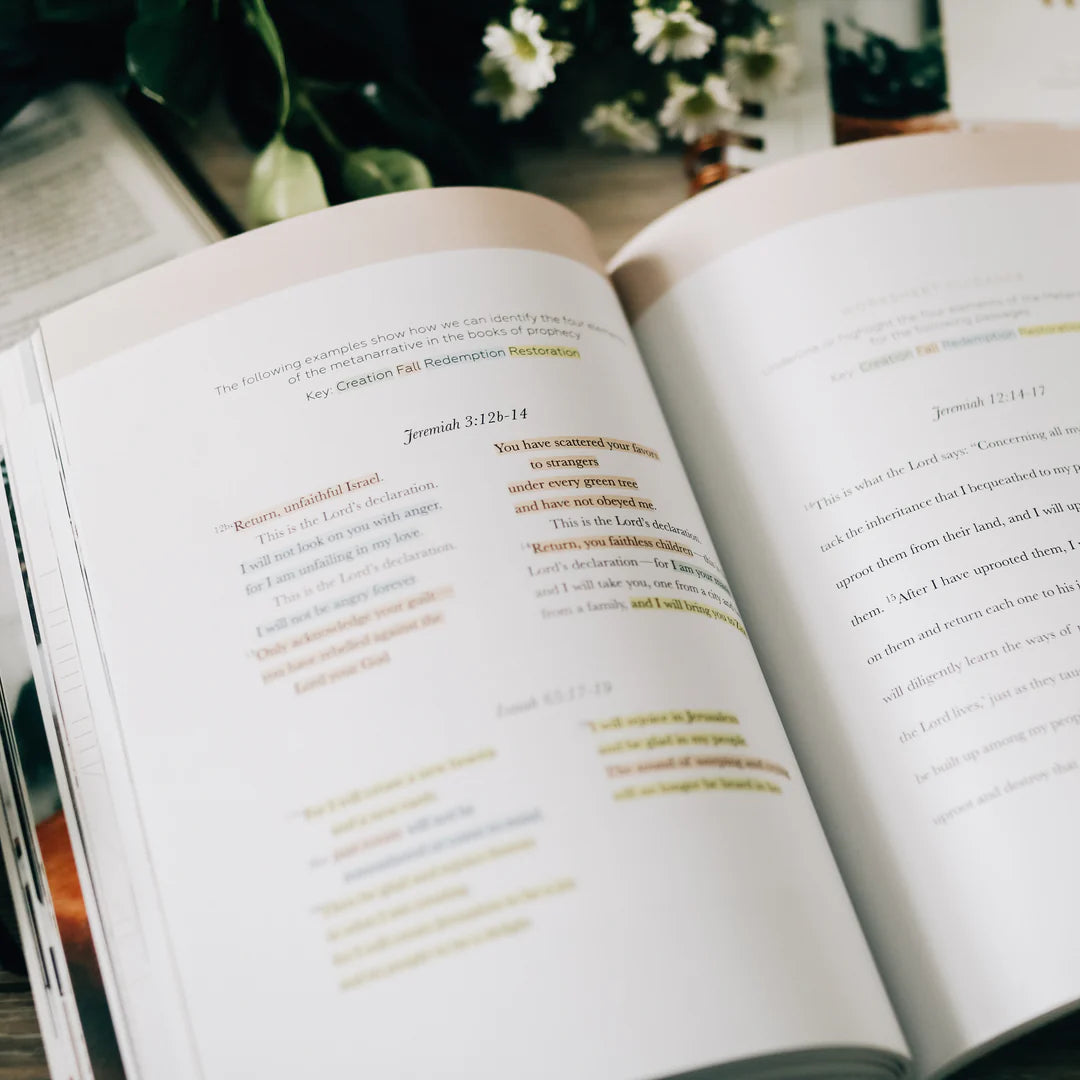 The following examples show how we can identify the four elements
of the metanarrative in the books of prophecy
Key: Creation Fall Redemption Restoration
Jeremiah 3:12b-14
12b Return, unfaithful Israel.
This is the Lord's declaration.
I will not look on you with anger,
for I am unfailing in my love.
This is the Lord's declaration.
I will not be angry forever.
13 Only acknowledge your guilt—
you have rebelled against the
Lord your God
You have scattered your favors
to strangers
under every green tree
and have not obeyed me.
This is the Lord's declaration.
14 Return, you faithless children—this
Lord's declaration—for I am your
and I will take you, one from a city and
from a family, and I will bring you to
Isaiah 65:17-19
For I will create a new heavens
and a new earth
will not be
I will rejoice in Jerusalem
and be glad in my people
The sound of weeping and crying
will no longer be heard in her
WORKSHEET GUIDANCE
Underline or highlight the four elements of the
for the following passages
Key: Creation Fall Redemption Restoration
Jeremiah 12:14-17
14 This is what the Lord says: "Concerning all my
tack the inheritance that I bequeathed to my
uproot them from their land, and I will
them. 15 After I have uprooted them, I
on them and return each one to his
will diligently learn the ways of
the Lord lives,' just as they
be built up among my
uproot and destroy that